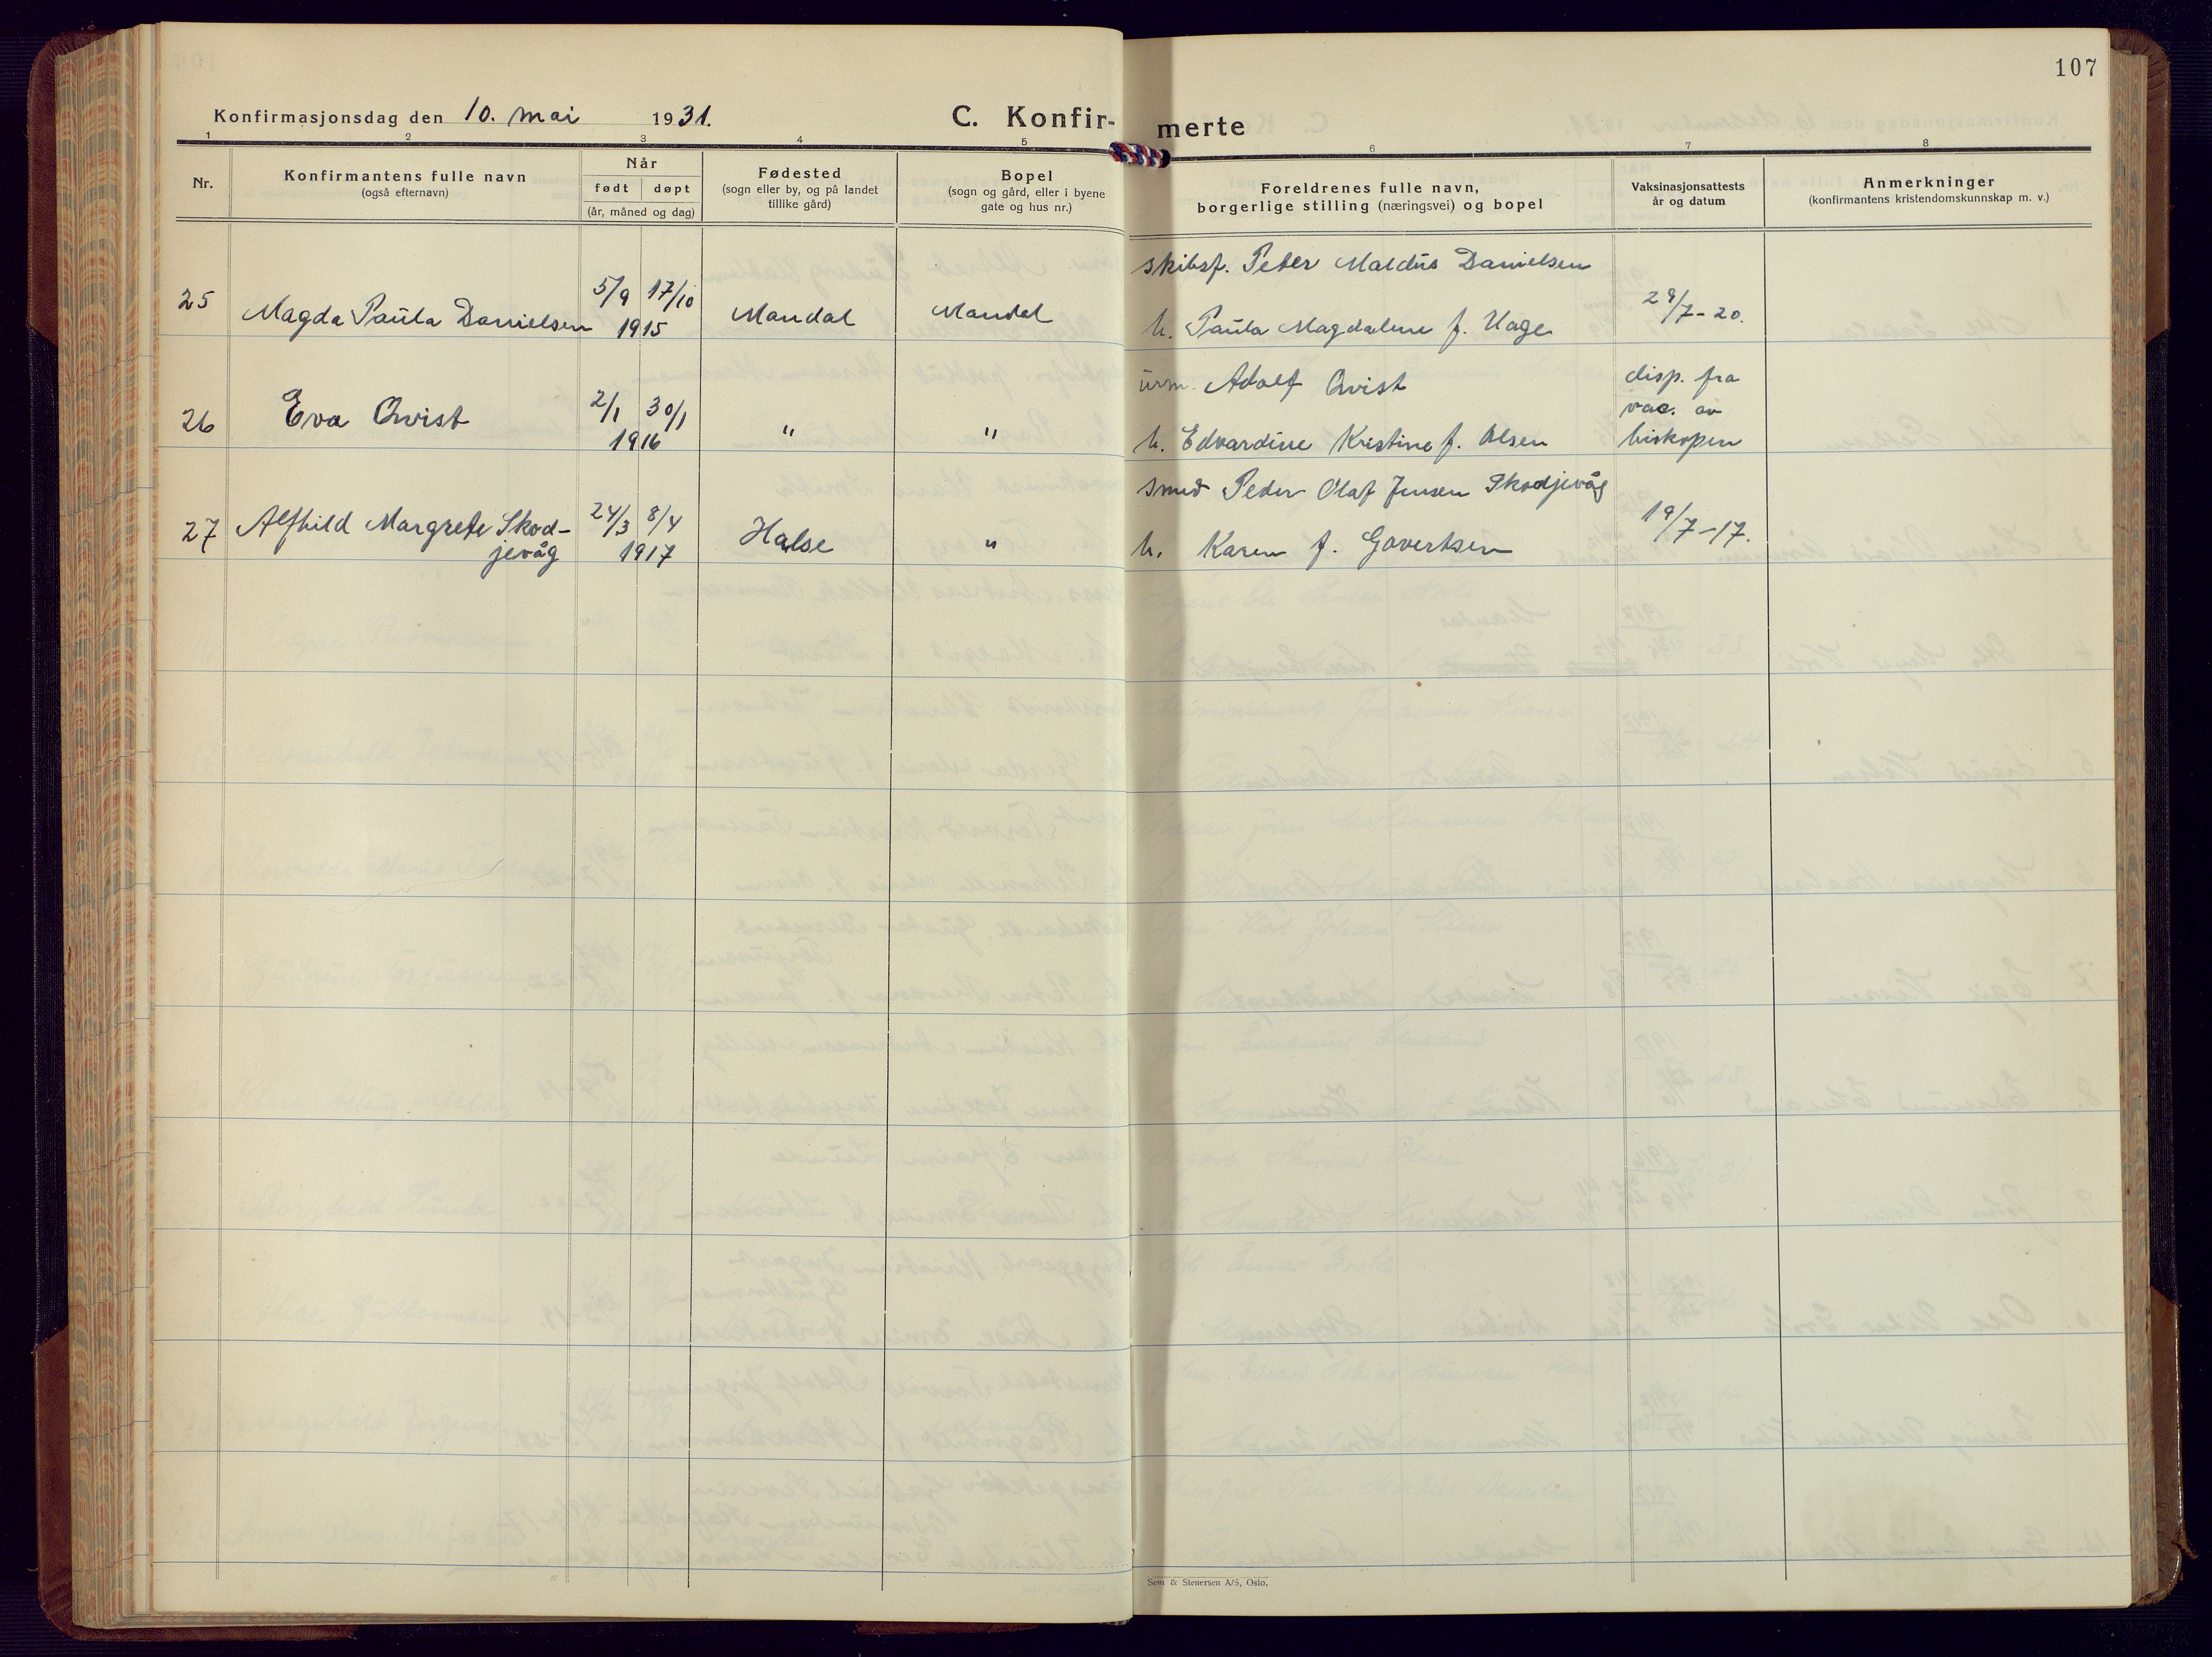 107
Konfirmasjonsdag den 10. mai 1931.
C. Konfir-merte
1 2 3 4 5 6 7 8
Nr.
Konfirmantens fulle navn
(også efternavn)
Når
født døpt
(år, måned og dag)
Fødested
(sogn eller by, og på landet
tillike gård)
Bopel
(sogn og gård, eller i byene
gate og hus nr.)
Foreldrenes fulle navn,
borgerlige stilling (næringsvei) og bopel
Vaksinasjonsattests
år og datum
Anmerkninger
(konfirmantens kristendomskunnskap m. v.)
25 Magda Paula Danielsen 5/9 17/10 1915 Mandal Mandal
skibsf. Peter Maldus Danielsen
h. Paula Magdalene f. Hage
29/7-20.
26 Eva Qvist 2/1 30/1 1916 " "
urm. Adolf Qvist
h. Edvardine Kristine f. Olsen
disp. fra
vac. av
biskopen
27 Alfhild Margrete Skod-
jevåg
24/3 8/4 1917 Halse "
smed Peder Olaf Jensen Skodjevåg
h. Karen f. Govertsen
19/7-17.
Sem & Stenersen A/S, Oslo.